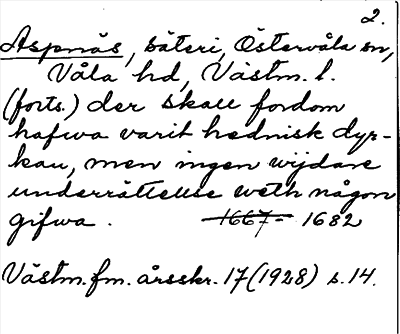 2.
Aspnäs, säteri, Östervåla sn,
Våla hd, Västm. l.
(forts.) der skall fordom
hafwa varit hednisk dyr-
kan, men ingen wijdare
underrättellse weth någon
gifwa. 1667- 1682
Västm. fm. årsskr. 17 (1928) s. 14.